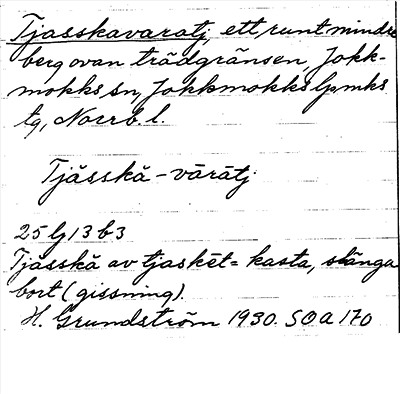 Tjasskavaratj, ett runt mindre
berg ovan trädgränsen, Jokk-
mokks sn, Jokkmokks lpmks
tg, Norrb. l.
Tjăsskă-vārātj
25 lj 13 b 3
Tjăsskă av tjaskēt = kasta, slänga
bort (gissning).
H. Grundström 1930. SOA 170